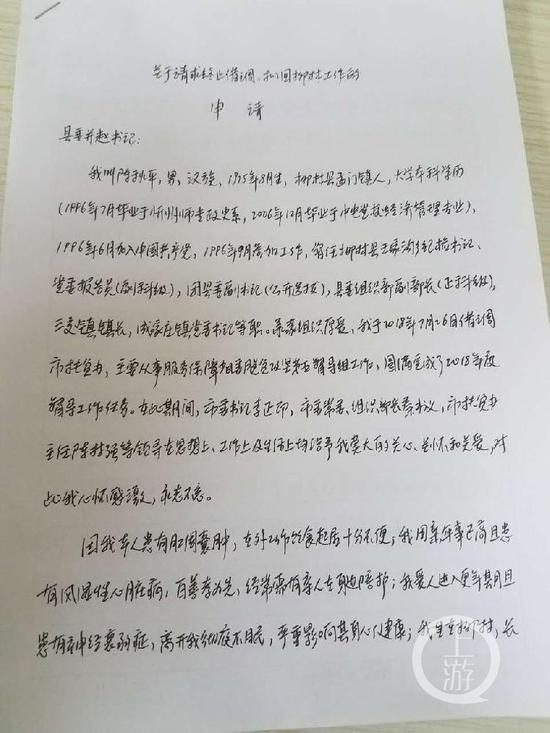 关于请求终止借调、拟回柳林工作的
申 请
县委并赵书记：
我叫陈秋平，男，汉族，1975年8月生，柳林县孟门镇人，大学本科学历
（1996年7月毕业于忻州师专政史系，2006年12月毕业于中央党校经济管理专业），
1996年6月加入中国共产党，1996年9月参加工作，曾任柳林县王家沟乡纪检书记、
党委报告员（副科级），团县委副书记（公开选拔），县委组织部副部长（正科级），
三交镇镇长，成家庄镇党委书记等职。承蒙组织厚爱，我于2018年7月26日借调
市扶贫办，主要从事服务保障省委脱贫攻坚第五督导组工作，圆满完成了2018年度
督导工作任务。在此期间，市委书记李正印，市委常委、组织部长秦书义，市扶贫办
主任陈材强等领导在思想上、工作上及生活上均给予我莫大的关心、关怀和关爱，对
此我心怀感激，永志不忘。
因我本人患有肛周囊肿，在外工作饮食起居十分不便；我母亲年事已高且患
有风湿性心脏病，百善孝为先，经常需有亲人在身边陪护；我爱人进入更年期且
患有神经衰弱症，离开我彻夜不眠，严重影响其身心健康；我生在柳林，长
上游